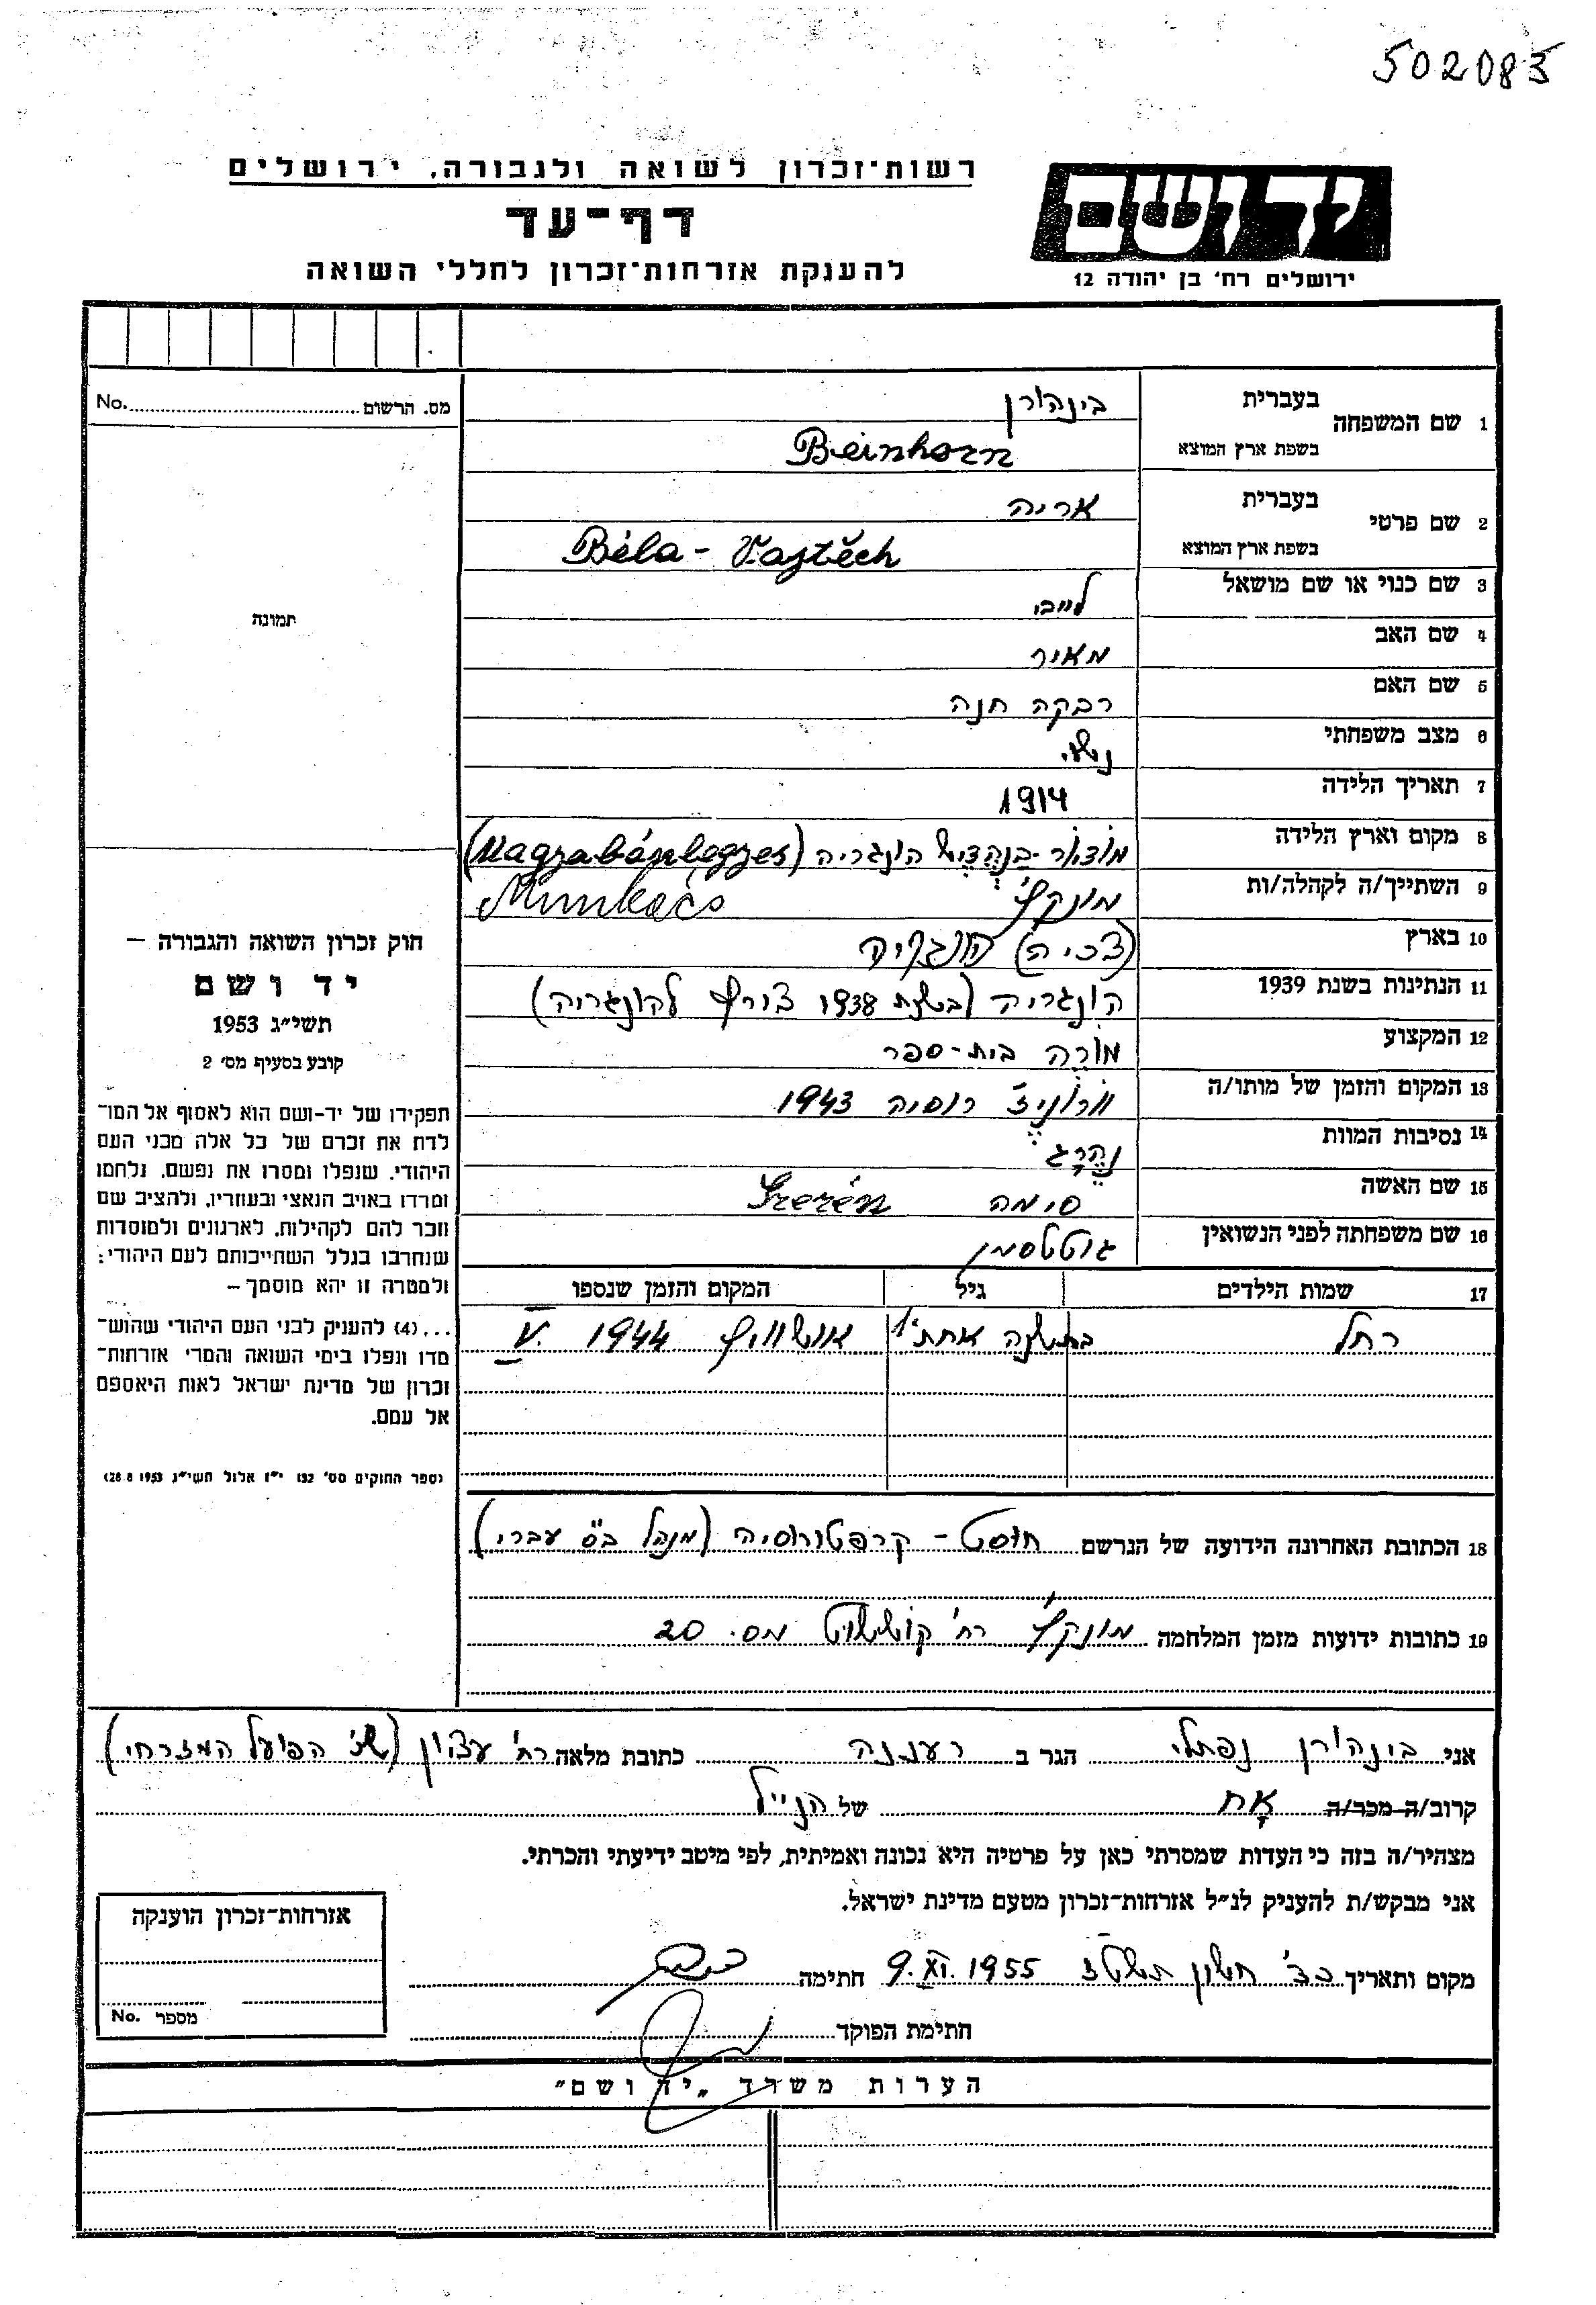 502083
רשות־זכרון לשואה ולגבורה, ירושלים
דף־עד
להענקת אזרחות־זכרון לחללי השואה
יד ושם
ירושלים רח׳ בן יהודה 12
מס. הרשום No.
1 שם המשפחה בעברית בינהורן
בשפת ארץ המוצא Beinhorn
2 שם פרטי בעברית אריה
בשפת ארץ המוצא Béla - Vojtěch
3 שם כנוי או שם מושאל לייבי
4 שם האב מאיר
5 שם האם רבקה חנה
6 מצב משפחתי נשוי
7 תאריך הלידה 1914
8 מקום וארץ הלידה הונגריה
9 השתייך/ה לקהלה/ות מונקץ׳ Munkács
10 בארץ (צכיה) הונגריה
11 הנתינות בשנת 1939 הונגריה (בשנת 1938 צורף להונגריה)
12 המקצוע מורה בית-ספר
13 המקום והזמן של מותו/ה וורוניז׳ רוסיה 1943
14 נסיבות המוות נהרג
15 שם האשה סימה Szerén
16 שם משפחתה לפני הנשואין גוטטסמן
תמונה
חוק זכרון השואה והגבורה –
יד ושם
תשי״ג 1953
קובע בסעיף מס׳ 2
תפקידו של יד-ושם הוא לאסוף אל המו־
לדת את זכרם של כל אלה מבני העם
היהודי, שנפלו ומסרו את נפשם, נלחמו
ומרדו באויב הנאצי ובעוזריו, ולהציב שם
וזכר להם לקהילות, לארגונים ולמוסדות
שנחרבו בגלל השתייכותם לעם היהודי;
ולמטרה זו יהא מוסמך –
...(4) להעניק לבני העם היהודי שהוש־
מדו ונפלו בימי השואה והמרי אזרחות־
זכרון של מדינת ישראל לאות היאספם
אל עמם.
(ספר החוקים מס׳ 132 י״ז אלול תשי״ג 28.8.1953)
17 שמות הילדים גיל המקום והזמן שנספו
רחל בת שנה אחת אושוויץ 1944 V.
18 הכתובת האחרונה הידועה של הנרשם חוסט - קרפטורוסיה (מנהל בי״ס עברי)
19 כתובות ידועות מזמן המלחמה מונקץ׳ רח׳ קושוט מס. 20
אני בינהורן נפתלי הגר ב רעננה כתובת מלאה רח׳ עציון (שכ׳ הפועל המזרחי)
קרוב/ה מכר/ה אָח של הנ״ל
מצהיר/ה בזה כי העדות שמסרתי כאן על פרטיה היא נכונה ואמיתית, לפי מיטב ידיעתי והכרתי.
אני מבקש/ת להעניק לנ״ל אזרחות־זכרון מטעם מדינת ישראל.
מקום ותאריך כד׳ חשון תשט״ז 9.XI.1955 חתימה
חתימת הפוקד
אזרחות־זכרון הוענקה
מספר No.
הערות משרד „יד ושם״